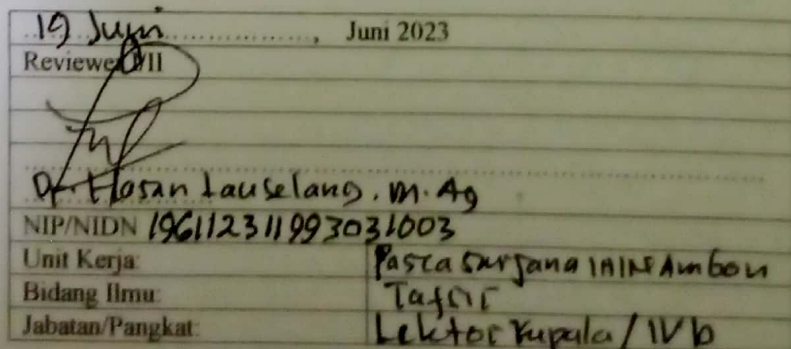 19 Juni ................, Juni 2023
Reviewer I/II
Dr. Hasan Lauselang. M.Ag
NIP/NIDN 196112311993031003
Unit Kerja: Pasca Sarjana IAIN Ambon
Bidang Ilmu: Tafsir
Jabatan/Pangkat: Lektor Kupala / IVb